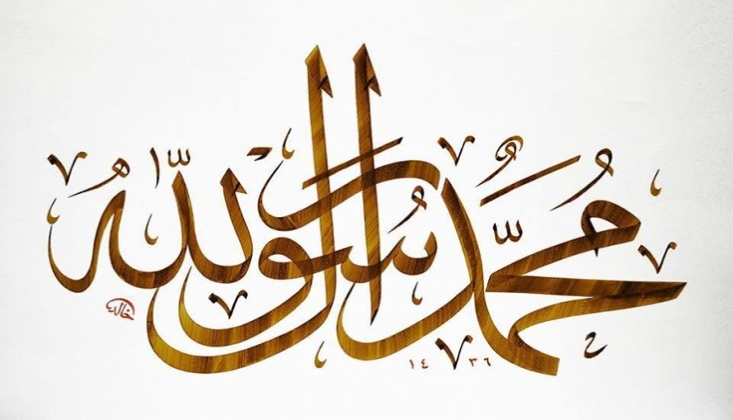 مُحَمَّدٌ رَسُولُ اللّٰهِ
خالد
١٤٣٦